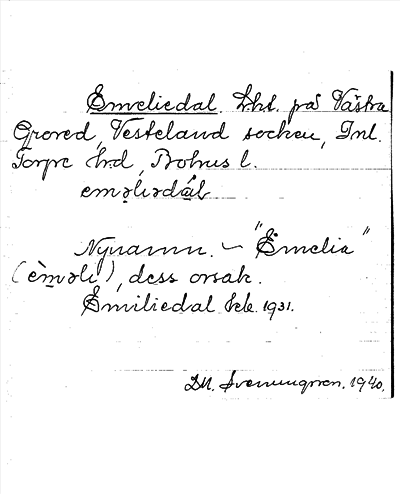 Emeliedal. Lht. på Västra
Grored, Vesteland socken, Inl.
Torpe hd, Bohus l.
eməliədɑ́l
Nynamn. – "Emelia"
(èməli), dess orsak.
Emiliedal kb. 1931.
DM. Svenungsson. 1940.